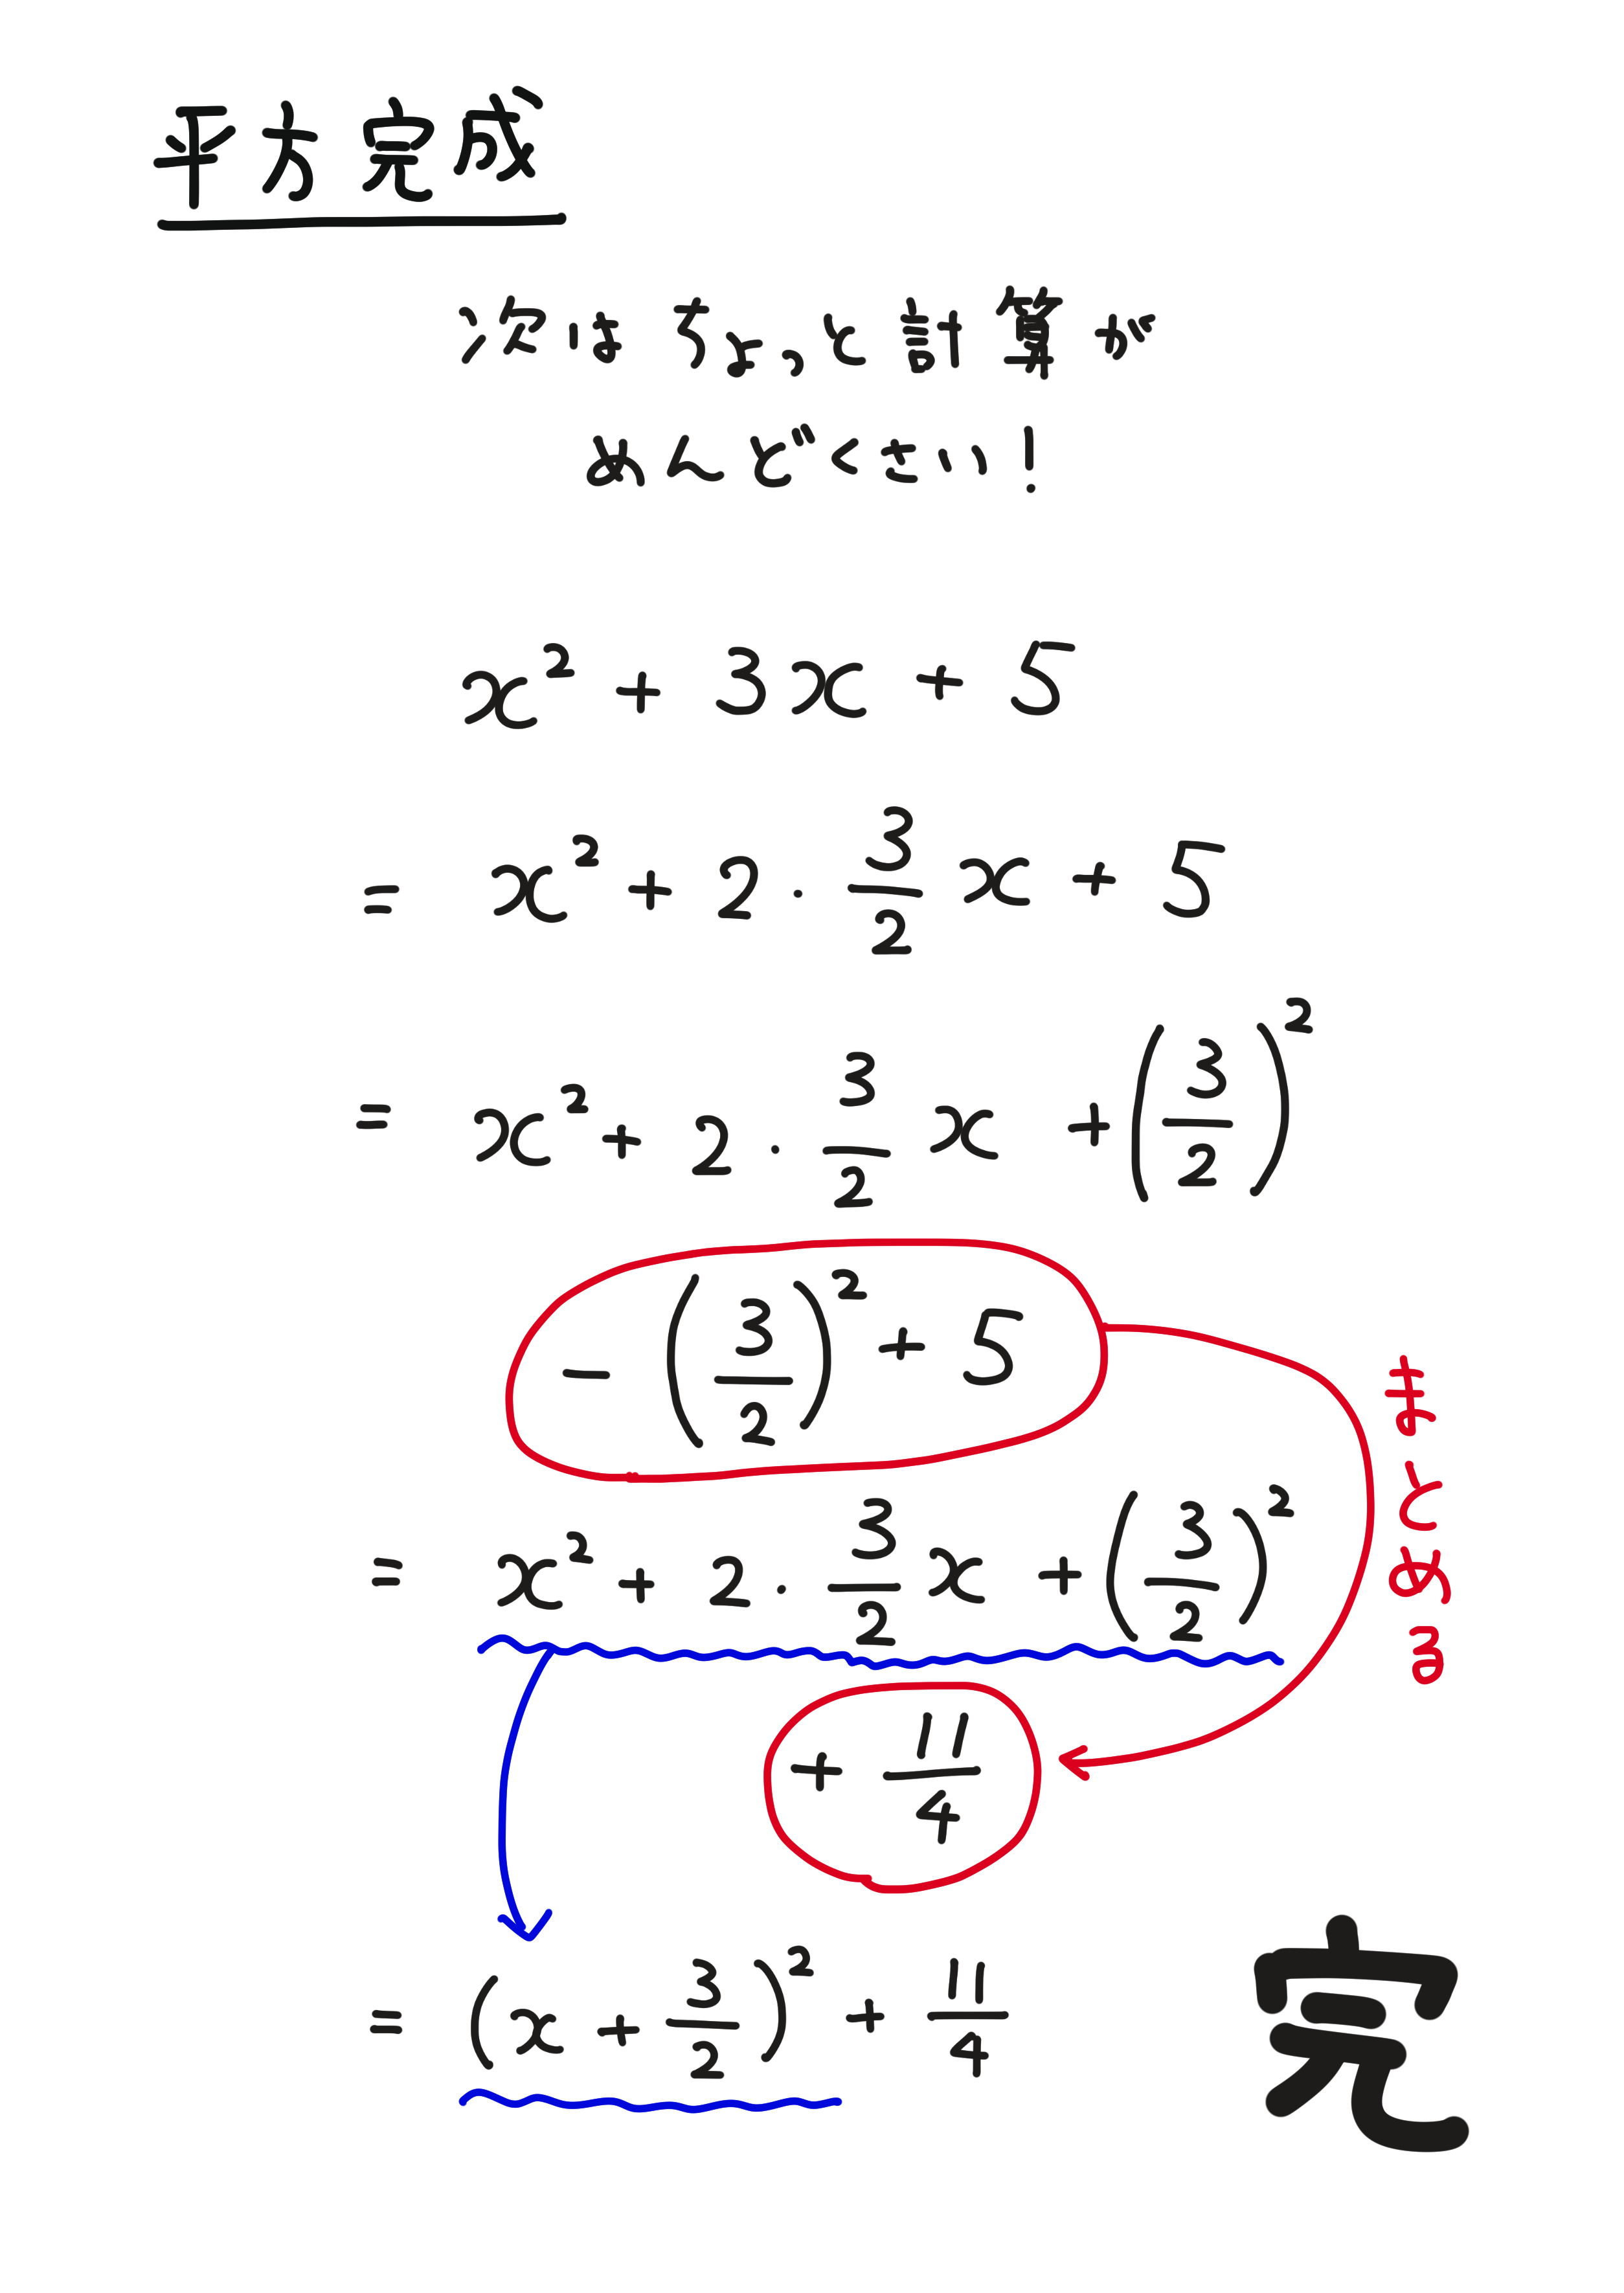 平方完成
次はちょっと計算が
めんどくさい!
x² + 3x + 5
= x² + 2・3/2 x + 5
= x² + 2・3/2 x + (3/2)²
- (3/2)² + 5
まとめる
= x² + 2・3/2 x + (3/2)²
+ 11/4
= (x + 3/2)² + 11/4
完